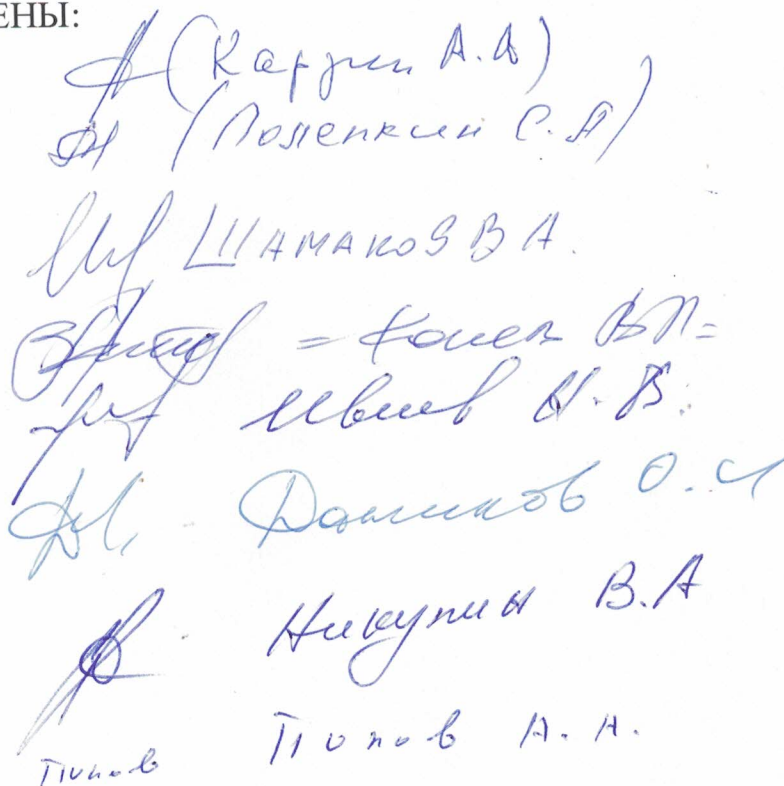 ЕНЫ:
(Карзин А.А)
(Полепкин С.А)
ШАМАКОВ В А.
= Конев ВП=
Ивлев Н.В.
Данилов О.И
Никулин В.А
Попов Попов А.А.